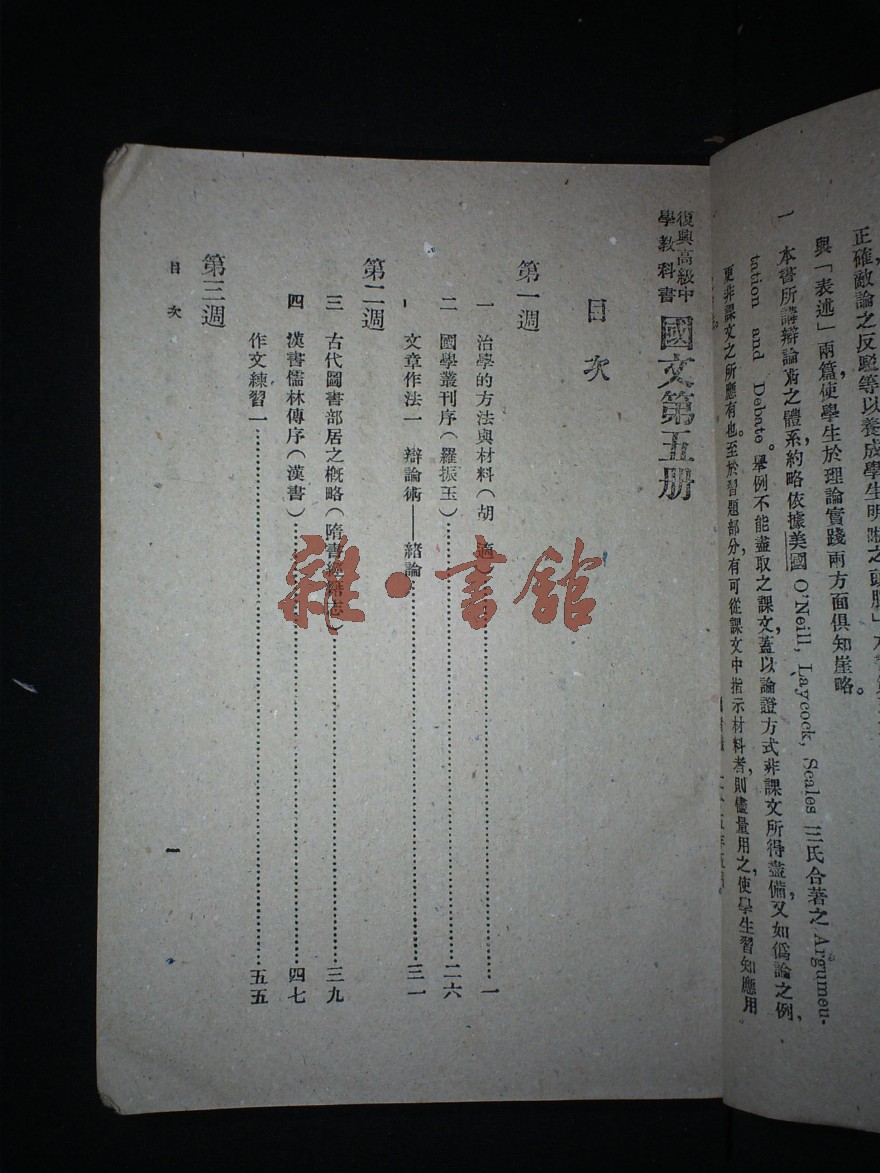 正確，敵論之反駁等以養成學生明晰之頭腦」
與「表述」兩篇，使學生於理論實踐兩方面俱知崖略。
一 本書所講辯論術之體系，約略依據美國 O'Neill, Laycock, Scales 三氏合著之 Argumeu-
tation and Debate。舉例不能盡取之課文，蓋以論證方式非課文所得盡備，又如僞論之例，
更非課文之所應有也。至於習題部分，有可從課文中指示材料者，則儘量用之，使學生習知應用
復興高級中
學教科書 國文第五册
目次
第一週
一 治學的方法與材料(胡適)……一
二 國學叢刊序(羅振玉)……二六
文章作法一 辯論術——緒論……三一
第二週
三 古代圖書部居之概略(隋書經籍志)……三九
四 漢書儒林傳序(漢書)……四七
作文練習一……五五
第三週
目次
一
雜·書館